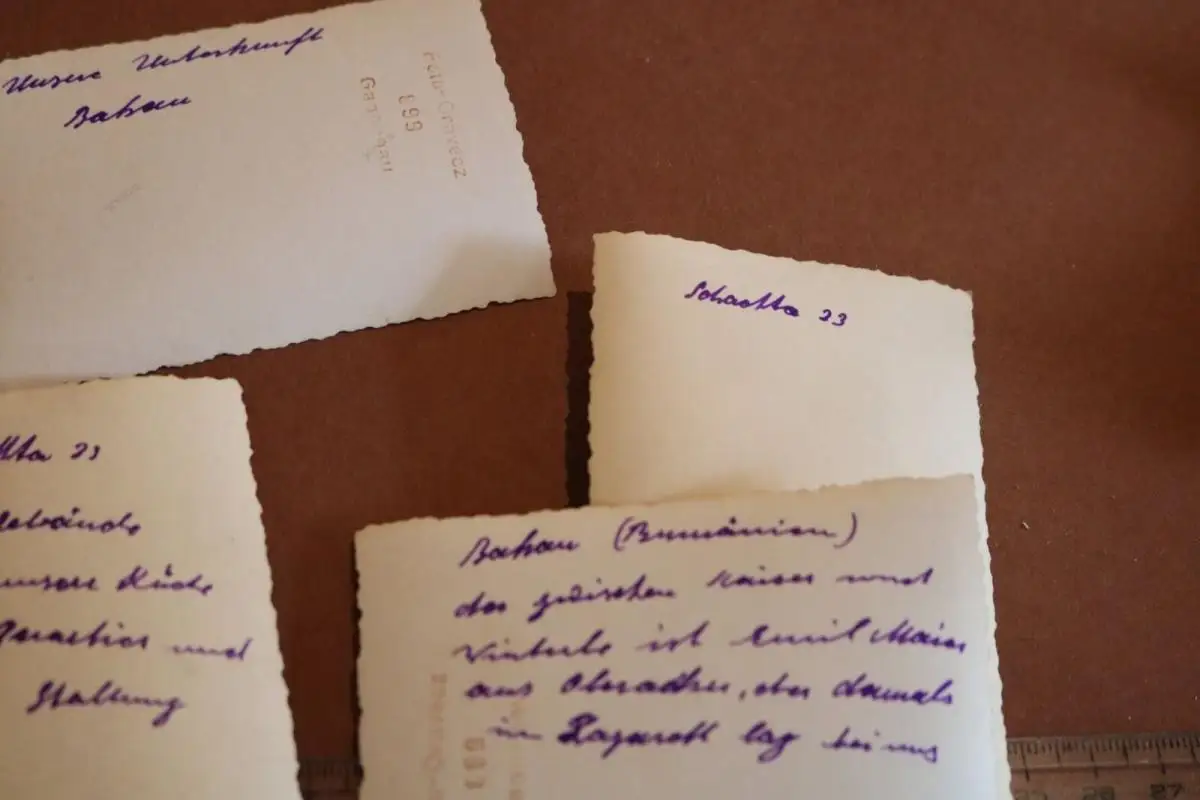 Unsere Unterkunft
Bakau
Foto-Gravecz
899
Schactta 23
tta 23
Gebäude
unsere Küche
Quartier und
Stallung
Bakau (Rumänien)
der zwischen Kaiser und
Winterle ist Emil Maier
aus Oberacker, der damals
in Lazarett lag bei uns